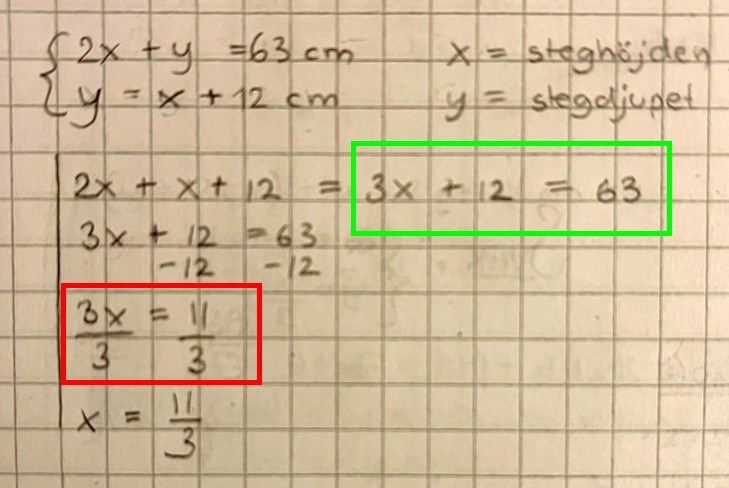 2x + y = 63 cm x = steghöjden
y = x + 12 cm y = stegdjupet
2x + x + 12 = 3x + 12 = 63
3x + 12 = 63
-12 -12
3x/3 = 11/3
x = 11/3